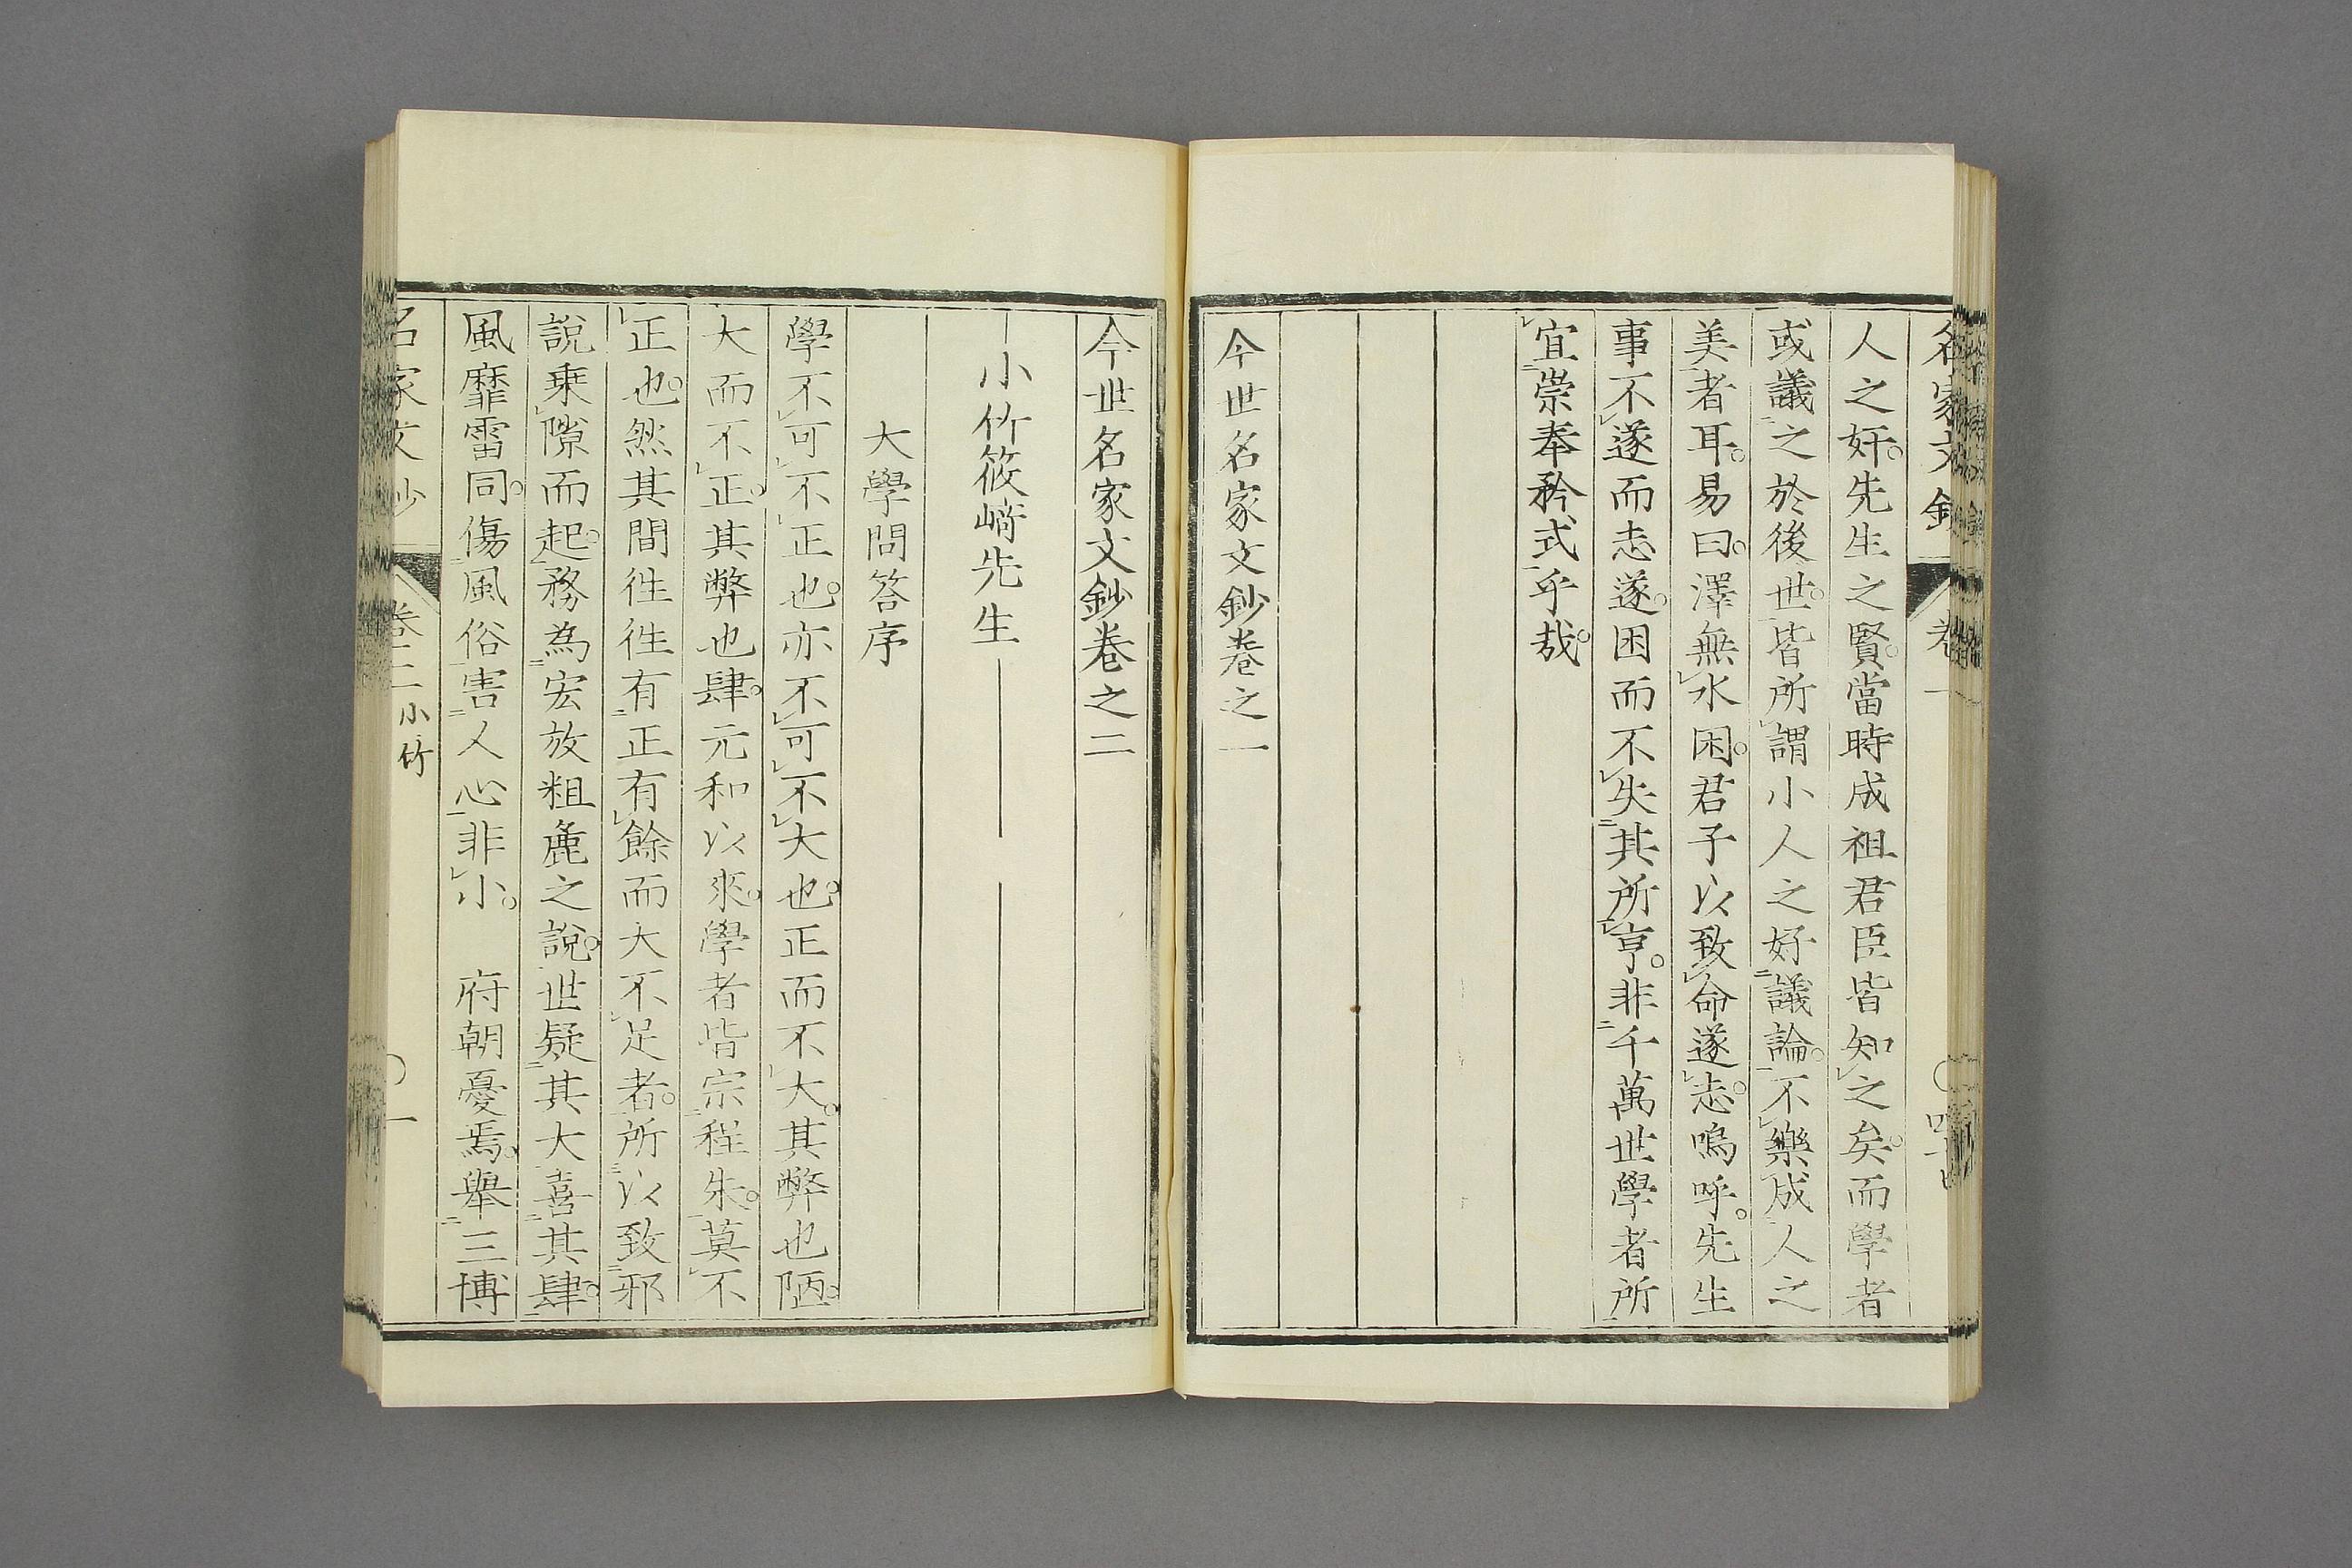 名家文鈔　卷一
人之奸。先生之賢。當時成祖君臣皆知之矣。而學者
或議之於後世。皆所謂小人之好議論。不樂成人之
美者耳。易曰。澤無水困。君子以致命遂志。嗚呼。先生
事不遂而志遂。困而不失其所亨。非千萬世學者所
宜崇奉矜式乎哉。
今世名家文鈔卷之一
今世名家文鈔卷之二
小竹筱﨑先生
大學問答序
學不可不正也。亦不可不大也。正而不大。其弊也陋。
大而不正。其弊也肆。元和以來。學者皆宗程朱。莫不
正也。然其間徃徃有正有餘而大不足者。所以致邪
說乘隙而起。務為宏放粗麁之說。世疑其大喜其肆。
風靡雷同。傷風俗害人心非小。　府朝憂焉。舉三博
名家文鈔　卷二　小竹　〇一